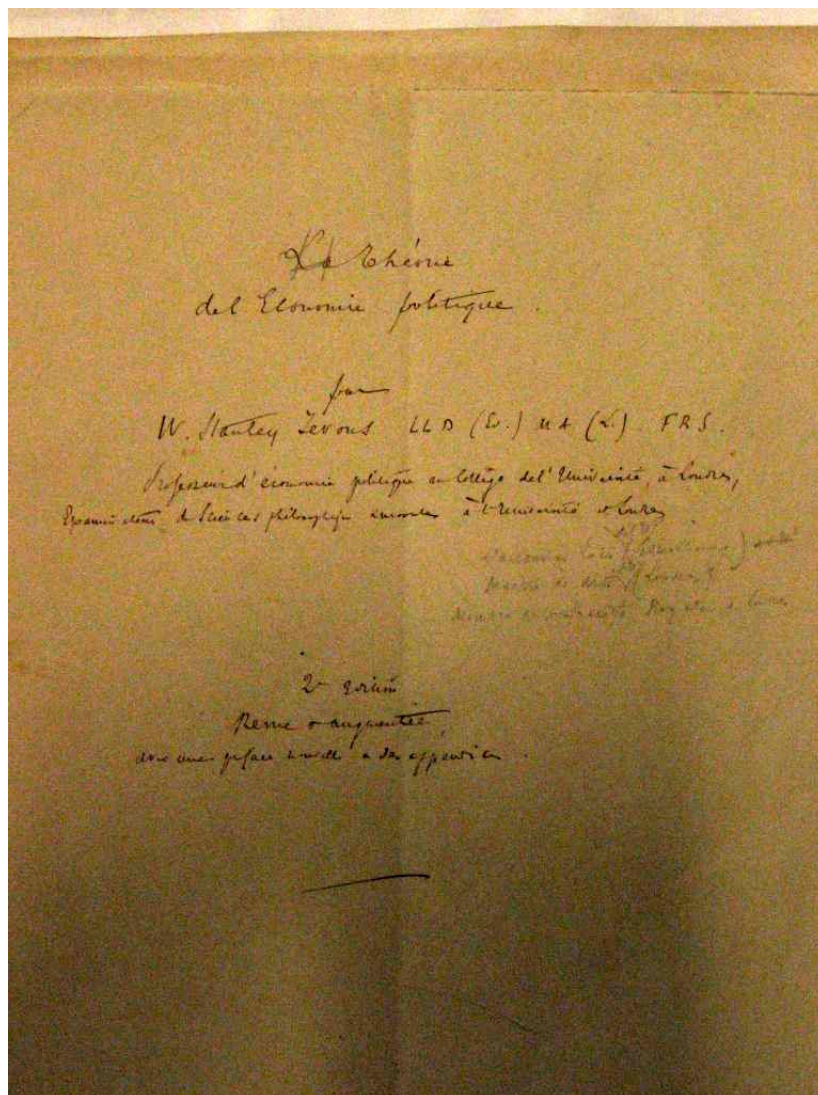 La Théorie
del Economie politique.
par
W. Stanley Jevons LLD (Ed.) MA (L.) FRS.
Professeur d'économie politique au Collège del'Université, à Londres,
Examinateur de Sciences philosophiques et morales à l'Université de Londres
Maître ès Arts (Londres)
Membre de la Société Royale de Londres
2e Edition
Revue & augmentée
avec une préface nouvelle & des appendices.